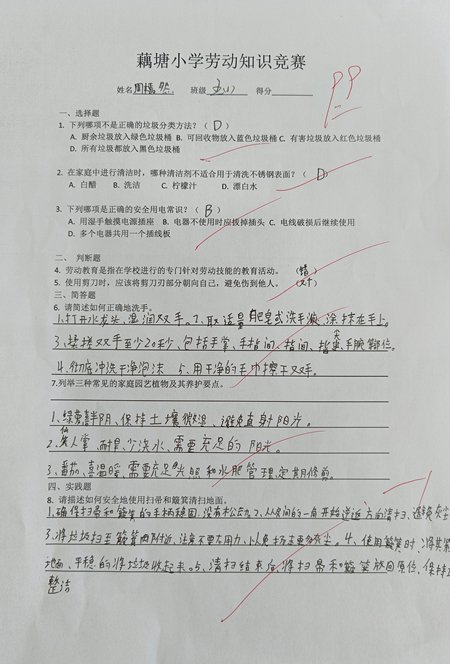 藕塘小学劳动知识竞赛
姓名周 然 班级 五(1) 得分
99
一、选择题
1. 下列哪项不是正确的垃圾分类方法?( D )
A. 厨余垃圾放入绿色垃圾桶 B. 可回收物放入蓝色垃圾桶 C. 有害垃圾放入红色垃圾桶
D. 所有垃圾都放入黑色垃圾桶
2. 在家庭中进行清洁时,哪种清洁剂不适合用于清洗不锈钢表面?( D )
A. 白醋 B. 洗洁 C. 柠檬汁 D. 漂白水
3. 下列哪项是正确的安全用电常识?( B )
A. 用湿手触摸电源插座 B. 电器不使用时应拔掉插头 C. 电线破损后继续使用
D. 多个电器共用一个插线板
二、 判断题
4. 劳动教育是指在学校进行的专门针对劳动技能的教育活动。 (错)
5. 使用剪刀时,应该将剪刀刃部分朝向自己,避免伤到他人。 (叉)
三、简答题
6. 请简述如何正确地洗手。
1.打开水龙头、湿润双手。2、取适量肥皂或洗手液,涂抹在手上。
3、揉搓双手至少20秒,包括手掌、手指间、指间、指尖、手腕部位。
4、彻底冲洗干净泡沫 5、用干净的毛巾擦干双手。
7.列举三种常见的家庭园艺植物及其养护要点。
1、绿萝喜半阴、保持土壤微湿、避免直射阳光。
2、仙人掌、耐旱,少浇水、需要充足的阳光。
3、番茄、喜温暖、需要充足光照和水肥管理定期修剪。
四、实践题
8. 请描述如何安全地使用扫帚和簸箕清扫地面。
1、确保扫帚和簸箕的手柄稳固,没有松动。2、从房间的一角开始逐近方向清扫、避免灰尘
3、将垃圾扫至簸箕附近,注意不要太用力,以免扬起更多灰尘。4、使用簸箕时、将其紧
地面、平稳的将垃圾收起来。5、清扫结束后,将扫帚和簸箕放回原位,保持
整洁